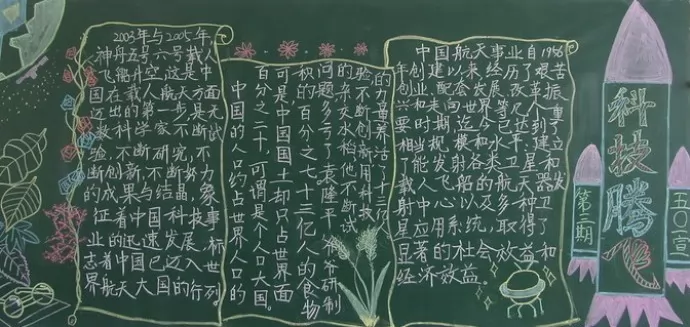 2003年与2005年
神舟五号六号载人
飞船升空,这是中
国在载人航天方面
迈出的第一步,是无
数科学家不断试
验,不断研究,不
断创新,不断努力
的成果与结晶,象
征着中国科技事
业的迅速发展,标
志着中国已迈入世
界航天大国的行列
中国的人口约占世界人口的
百分之二十,可谓是个人口大国。
可是中国国土却只占世界面
积的百分之七十三亿人的食物
问题多亏了袁隆平爷爷研制
的杂交水稻他不断试
验不断创新用科技
的力量养活了十三亿
中国航天事业自1956
年创建以来,经历了艰苦
创业、配套发展、改革振
兴和走向世界几个重
要时期,迄今已达到了
相当规模和水平:
显著的社会效益和
经济效益。
科技腾飞
第二期